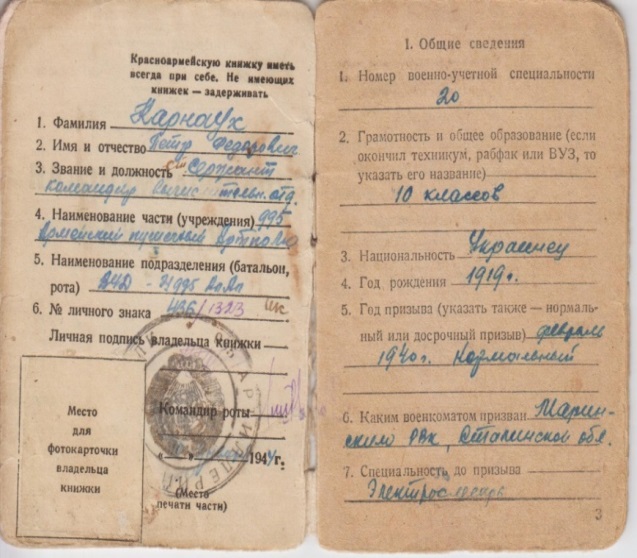 Красноармейскую книжку иметь
всегда при себе. Не имеющих
книжек — задерживать
1. Фамилия Карнаух
2. Имя и отчество Петр Федорович
3. Звание и должность сержант
командир вычислительн. отд.
4. Наименование части (учреждения) 995
Армейский пушечный
5. Наименование подразделения (батальон,
рота)
6. № личного знака 436/1323
Личная подпись владельца книжки
Командир роты
1944 г.
(Место
печати части)
Место
для
фотокарточки
владельца
книжки
1. Общие сведения
1. Номер военно-учетной специальности
20
2. Грамотность и общее образование (если
окончил техникум, рабфак или ВУЗ, то
указать его название)
10 классов
3. Национальность Украинец
4. Год рождения 1919г.
5. Год призыва (указать также — нормаль-
ный или досрочный призыв) февраль
1940г. Нормальный
6. Каким военкоматом призван Марин-
ским РВК, Сталинской обл.
7. Специальность до призыва
3